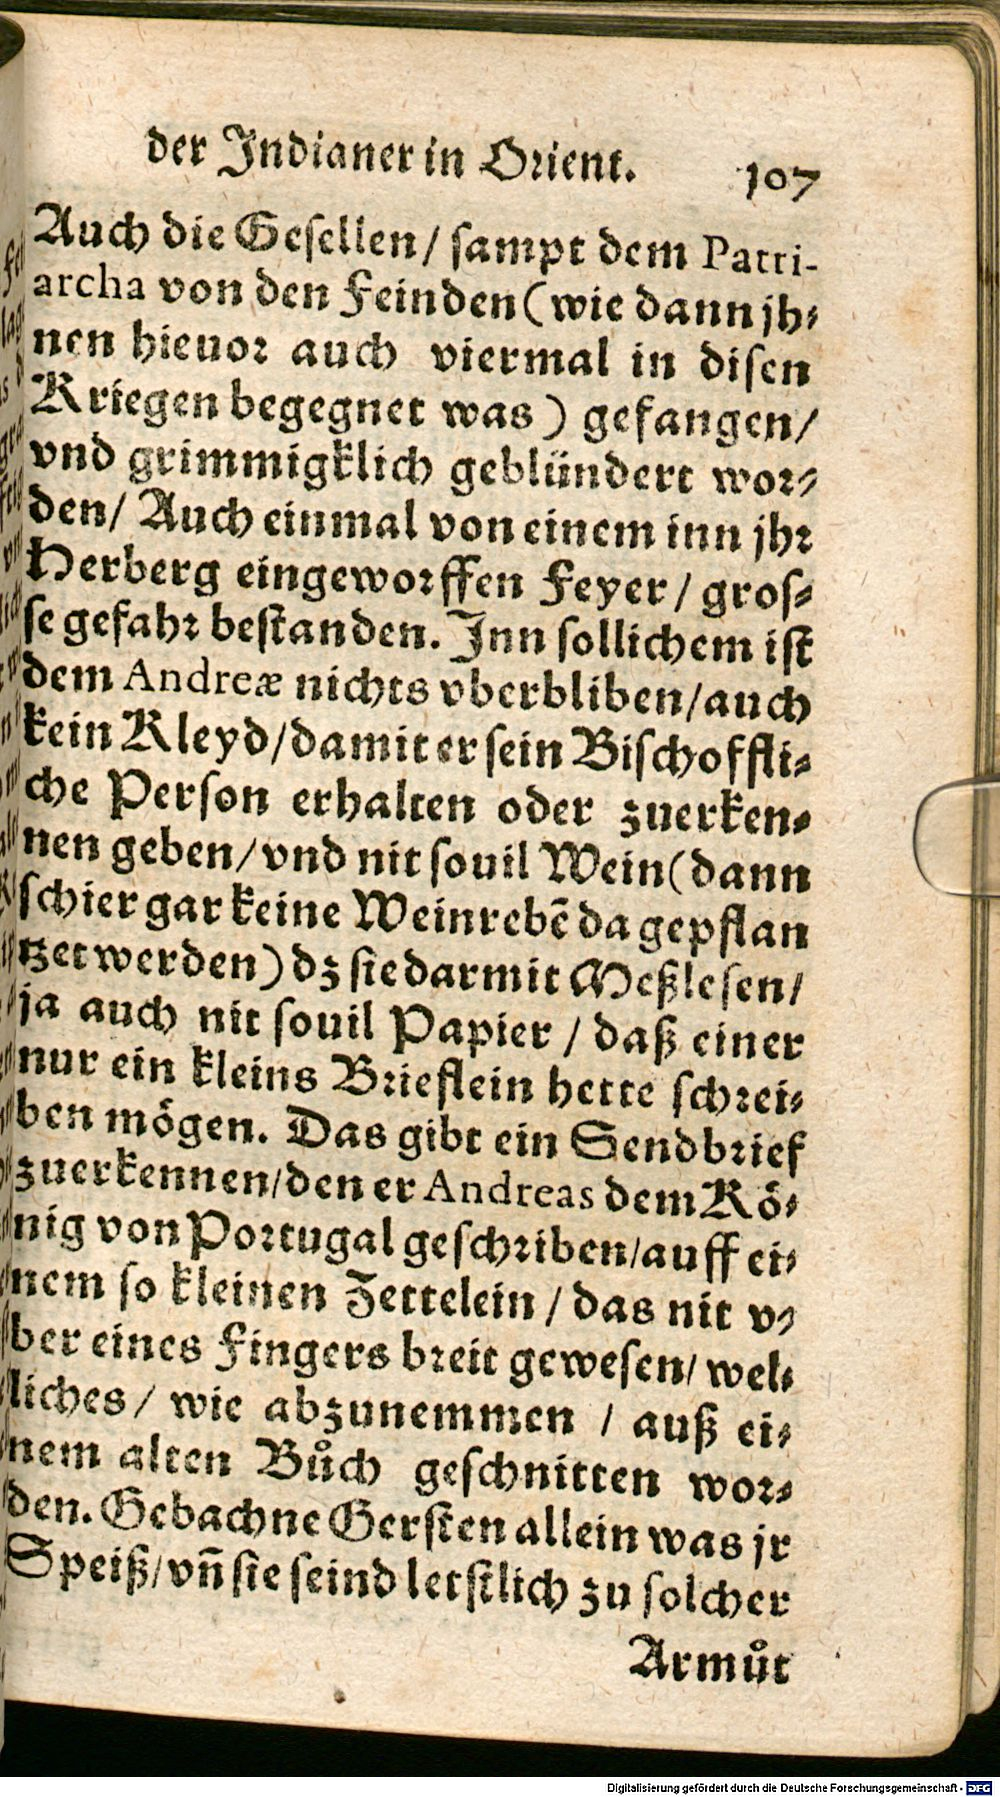 der Indianer in Orient. 107
Auch die Gesellen/ sampt dem Patri-
archa von den Feinden (wie dann jh⸗
nen hieuor auch viermal in disen
Kriegen begegnet was) gefangen/
vnd grimmigklich geblündert wor⸗
den/ Auch einmal von einem inn jhr
Herberg eingeworffen Feyer/ gros⸗
se gefahr bestanden. Inn sollichem ist
dem Andreæ nichts vberbliben/ auch
kein Kleyd/ damit er sein Bischoffli⸗
che Person erhalten oder zuerken⸗
nen geben/ vnd nit souil Wein (dann
schier gar keine Weinrebē da gepflan
tzet werden) dz sie darmit Meßlesen/
ja auch nit souil Papier / daß einer
nur ein kleins Brieflein hette schrei⸗
ben mögen. Das gibt ein Sendbrief
zuerkennen/ den er Andreas dem Kö⸗
nig von Portugal geschriben/ auff ei⸗
nem so kleinen Zettelein / das nit v⸗
ber eines Fingers breit gewesen/ wel⸗
liches/ wie abzunemmen / auß ei⸗
nem alten Bůch geschnitten wor⸗
den. Gebachne Gersten allein was jr
Speiß/ vñ sie seind letstlich zu solcher
Armůt
Digitalisierung gefördert durch die Deutsche Forschungsgemeinschaft - DFG